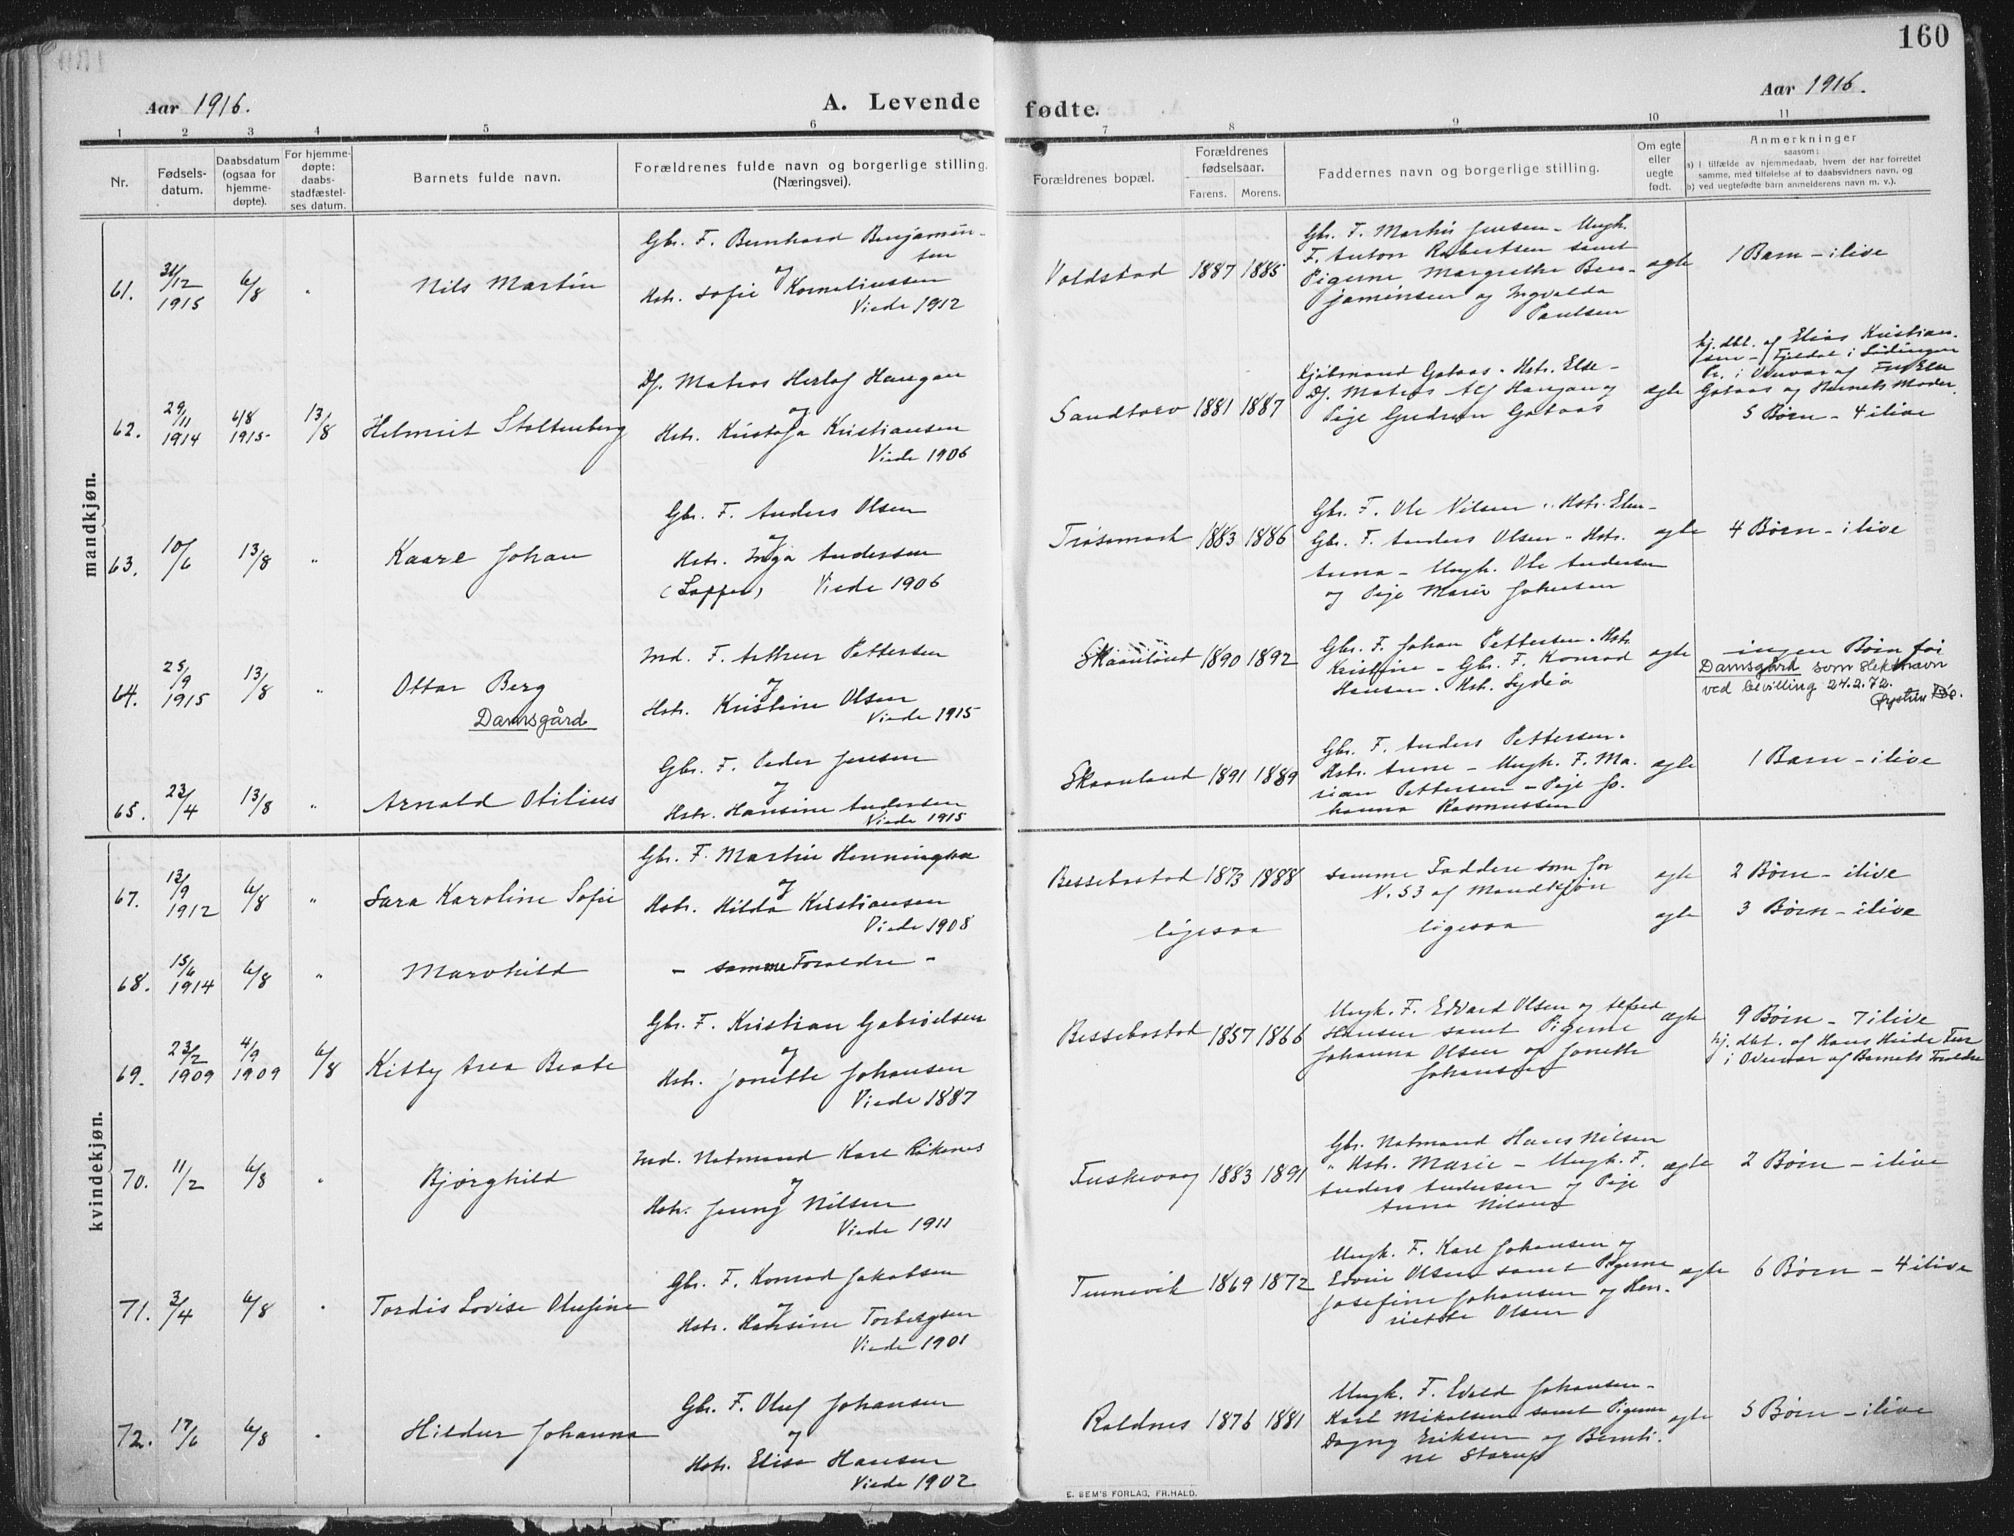 160
Aar 1916.
A. Levende fødte.
Aar 1916.
1 2 3 4 5 6 7 8 9 10 11
Nr.
Fødsels-
datum.
Daabsdatum
(ogsaa for
hjemme-
døpte).
For hjemme-
døpte:
daabs-
stadfæstel-
ses datum.
Barnets fulde navn.
Forældrenes fulde navn og borgerlige stilling.
(Næringsvei).
Forældrenes bopæl.
Forældrenes
fødselsaar.
Farens. Morens.
Faddernes navn og borgerlige stilling.
Om egte
eller
uegte
født.
Anmerkninger
saasom:
a) I tilfælde av hjemmedaab, hvem der har forrettet
samme, med tilføielse af to daabsvidners navn, og
b) ved uegtefødte barn anmelderens navn m. v.).
mandkjøn.
61.
31/12
1915
6/8
"
Nils Martin
Gbr. F. Bernhard Benjamin-
sen
og
Hstr. Sofie Korneliussen
Viede 1912
Voldstad 1887 1885
Gbr. F. Martin Jensen – Ungk.
F. Anton Robertsen samt
Pigerne Margrethe Ben-
jaminsen og Ingvalda
Paulsen
ægte
1 Barn – ilive
62.
29/11
1914
6/8
1915
13/8
Helmut Stoltenberg
Df. Matros Herlof Haugan
og
Hstr. Kristofa Kristiansen
Viede 1906
Sandtorv 1881 1887
Gotaas – Hstr. Else –
Df. Matros Alf Haugan og
Pige Gudrun Gotaas
ægte
hj. dbt. af Elias Kristian-
sen – Fjeldal i Lødingen
Pr. i Overvær af Fru Else
Gotaas og Barnets Moder
5 Børn – 4 ilive
63.
10/6
13/8
"
Kaare Johan
Gbr. F. Anders Olsen
og
Hstr. Inga Andersen
(Lapper) Viede 1906
Trøsemark 1883 1886
Gbr. F. Ole Nilsen " Hstr. Elen –
Gbr. F. Anders Olsen " Hstr.
Anna – Ungk. Ole Andersen
og Pige Marie Johnsen
ægte
4 Børn – ilive
64.
25/9
1915
13/8
"
Ottar Berg
Damsgård
Ind. F. Arthur Pettersen
og
Hstr. Kristine Olsen
Viede 1915
Skaanland 1890 1892
Gbr. F. Johan Pettersen – Hstr.
Kristine – Gbr. F. Konrad
Hansen – Hst. Lydia
ægte
ingen Børn før
Damsgård som slektsnavn
ved bevilling 24.2.72.
65.
23/4
13/8
"
Arnold Otilius
Gbr. F. Peder Jensen
og
Hstr. Hansine Andersen
Viede 1915
Skaanland 1891 1889
Gbr. F. Anders Pettersen –
Hstr. Anne – Ungk. F. Ma-
rian Pettersen – Pige Jo-
hanna Rasmussen
ægte
1 Barn – ilive
kvindekjøn.
67.
13/9
1912
6/8
"
Sara Karoline Sofie
Gbr. F. Martin Henningsen
og
Hstr. Hilda Kristiansen
Viede 1908
Bessebostad 1873 1888
samme Faddere som for
N. 53 af Mandkjøn
ægte
2 Børn – ilive
68.
15/6
1914
6/8
"
Marohild
– samme Forældre –
ligesaa
ligesaa
ægte
3 Børn – ilive
69.
23/2
1909
4/9
1909
6/8
Kitty Area Beate
Gbr. F. Kristian Gabrielsen
og
Hstr. Jonette Johansen
Viede 1887
Bessebostad 1857 1866
Ungk. F. Edvard Olsen og Alfred
Hansen samt Pigerne
Johanna Olsen og Jonette
Johansen
ægte
9 Børn – 7 ilive
hj. dbt. af Hans Heide
i Overvær af Barnets Forældre
70.
11/2
6/8
"
Bjørghild
Ind. Notmand Karl Rikenes
og
Hstr. Jenny Nilsen
Viede 1911
Fuskevaag 1883 1891
Gbr. Notmand Hans Nilsen
" Hstr. Marie – Ungk. F.
Anders Andersen og Pige
Anna Nilsen
ægte
2 Børn – ilive
71.
3/4
6/8
"
Tordis Lovise Olufine
Gbr. F. Konrad Jakobsen
og
Hstr. Hansine Torbergsen
Viede 1901
Tennevik 1869 1872
Ungk. F. Karl Johansen og
Edvin Olsen samt Pigerne
Josefine Johansen og Hen-
riette Olsen
ægte
6 Børn – 4 ilive
72.
17/6
6/8
"
Hildur Johanna
Gbr. F. Oluf Johansen
og
Hstr. Elisa Hansen
Viede 1902
Roldnes 1876 1881
Ungk. F. Evald Johansen –
Karl Mikalsen samt Pigerne
Dagny Eriksen og Bernti-
ne Storup
ægte
5 Børn – ilive
E. SEM'S FORLAG, FR.HALD.